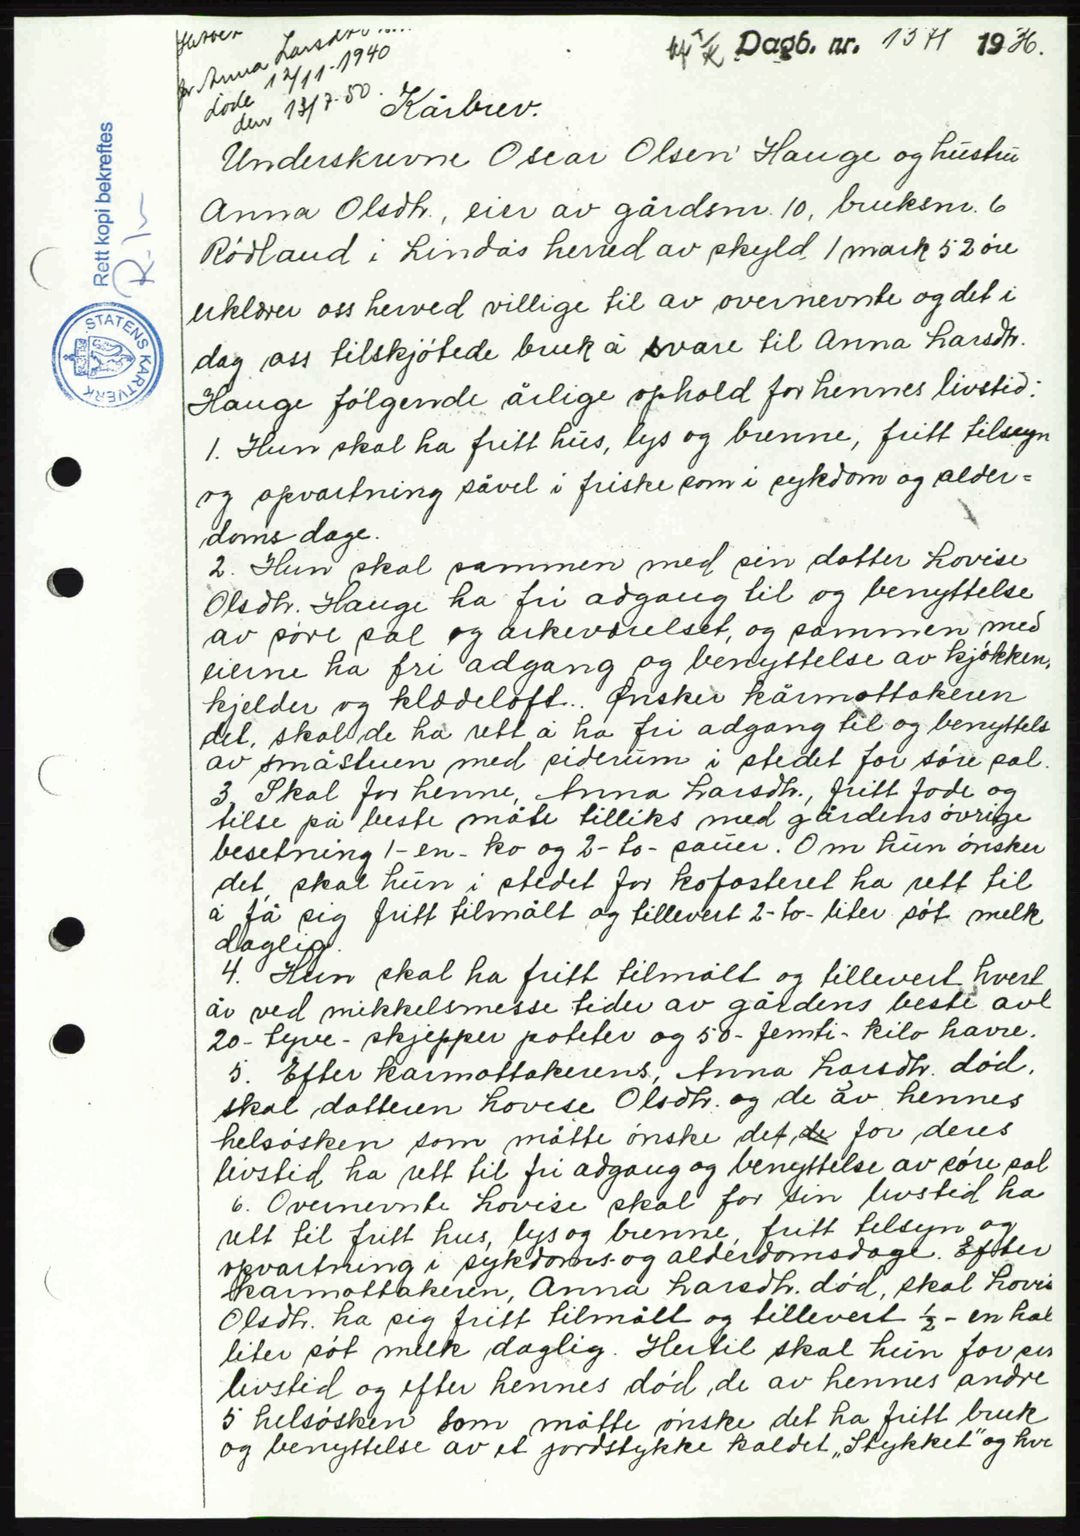 Dagb. nr. 1371 1936.
Anna Larsdtr.
døde 12/11-1940
den 13/7-50.
Kårbrev.
Rett kopi bekreftes
STATENS KARTVERK
Underskrevne Oscar Olsen Hauge og hustru
Anna Olsdtr., eier av gårdsnr. 10, bruksnr. 6
Rödland i Lindås herred av skyld 1 mark 52 öre
erklærer oss herved villige til av overnevnte og det i
dag oss tilskjötede bruk å svare til Anna Larsdtr.
Hauge fölgende årlige ophold for hennes livstid:
1. Hun skal ha fritt hus, lys og brenne, fritt tilsyn
og opvartning såvel i friske som i sykdom og alder=
doms dage.
2. Hun skal sammen med sin datter Lovise
Olsdtr. Hauge ha fri adgang til og benyttelse
av söre sal og arkeværelset, og sammen med
eierne ha fri adgang og benyttelse av kjökken,
kjelder og klædeloft. Önsker kårmottakeren
det, skal de ha rett å ha fri adgang til og benyttels
av småstuen med siderum i stedet for söre sal.
3. Skal for henne, Anna Larsdtr., fritt fode og
tilse på beste måte tilliks med gårdens övrige
besetning 1-en- ko og 2-to- sauer. Om hun önsker
det, skal hun i stedet for kofosteret ha rett til
å få sig fritt tilmålt og tillevert 2-to-liter söt melk
daglig.
4. Hun skal ha fritt tilmålt og tillevert hvert
år ved mikkelsmesse tider av gårdens beste avl
20-tyve- skjepper poteter og 50-femti- kilo havre.
5. Efter kårmottakerens, Anna Larsdtr. död,
skal datteren Lovise Olsdtr. og de av hennes
helsösken som måtte önske det, de for deres
livstid ha rett til fri adgang og benyttelse av söre sal
6. Overnevnte Lovise skal for sin livstid ha
rett til fritt hus, lys og brenne, fritt tilsyn og
opvartning i sykdoms- og alderdomsdage. Efter
kårmottakeren, Anna Larsdtr. död, skal Lovis
Olsdtr. ha sig fritt tilmålt og tillevert ½-en hal
liter söt melk daglig. Hertil skal hun for sin
livstid og efter hennes död, de av hennes andre
5 helsösken som måtte önske det ha fritt bruk
og benyttelse av et jordstykke kaldet „Stykket" og hve